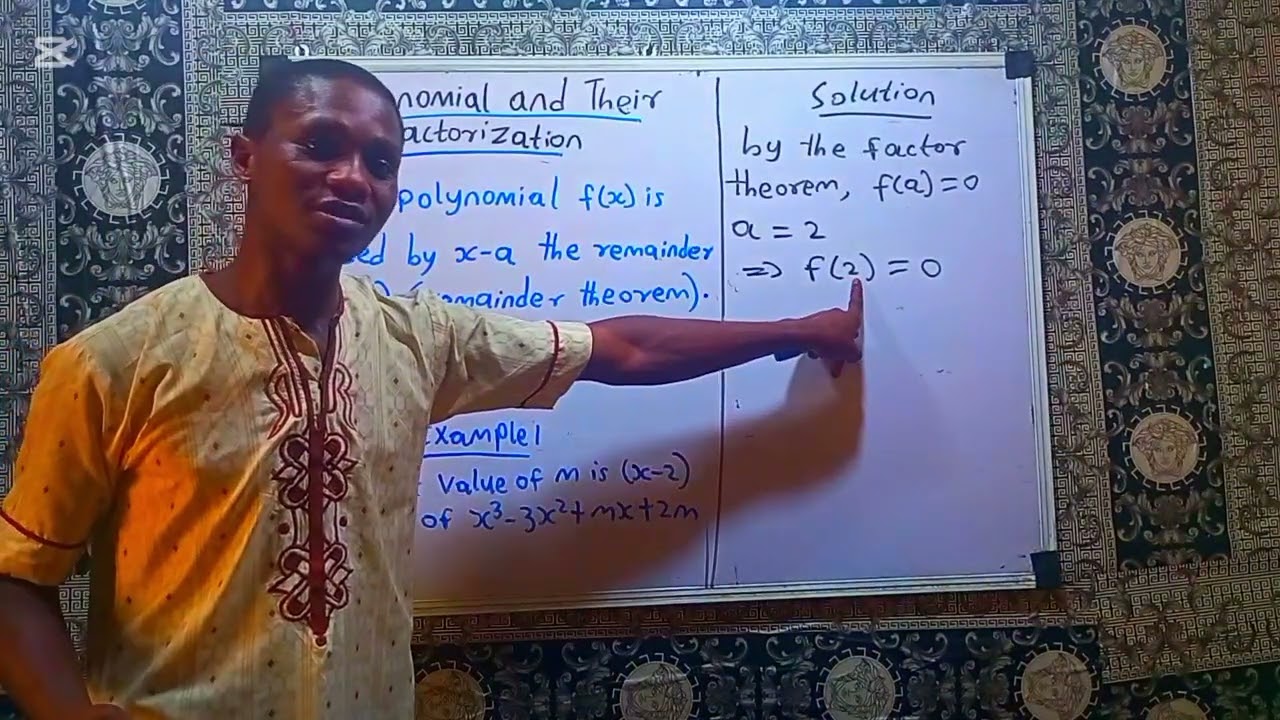 nomial and Their
actorization
polynomial f(x) is
ed by x-a the remainder
mainder theorem).
Example 1
Value of m is (x-2)
of x³-3x²+mx+2m
Solution
by the factor
theorem, f(a)=0
a = 2
=> f(2) = 0